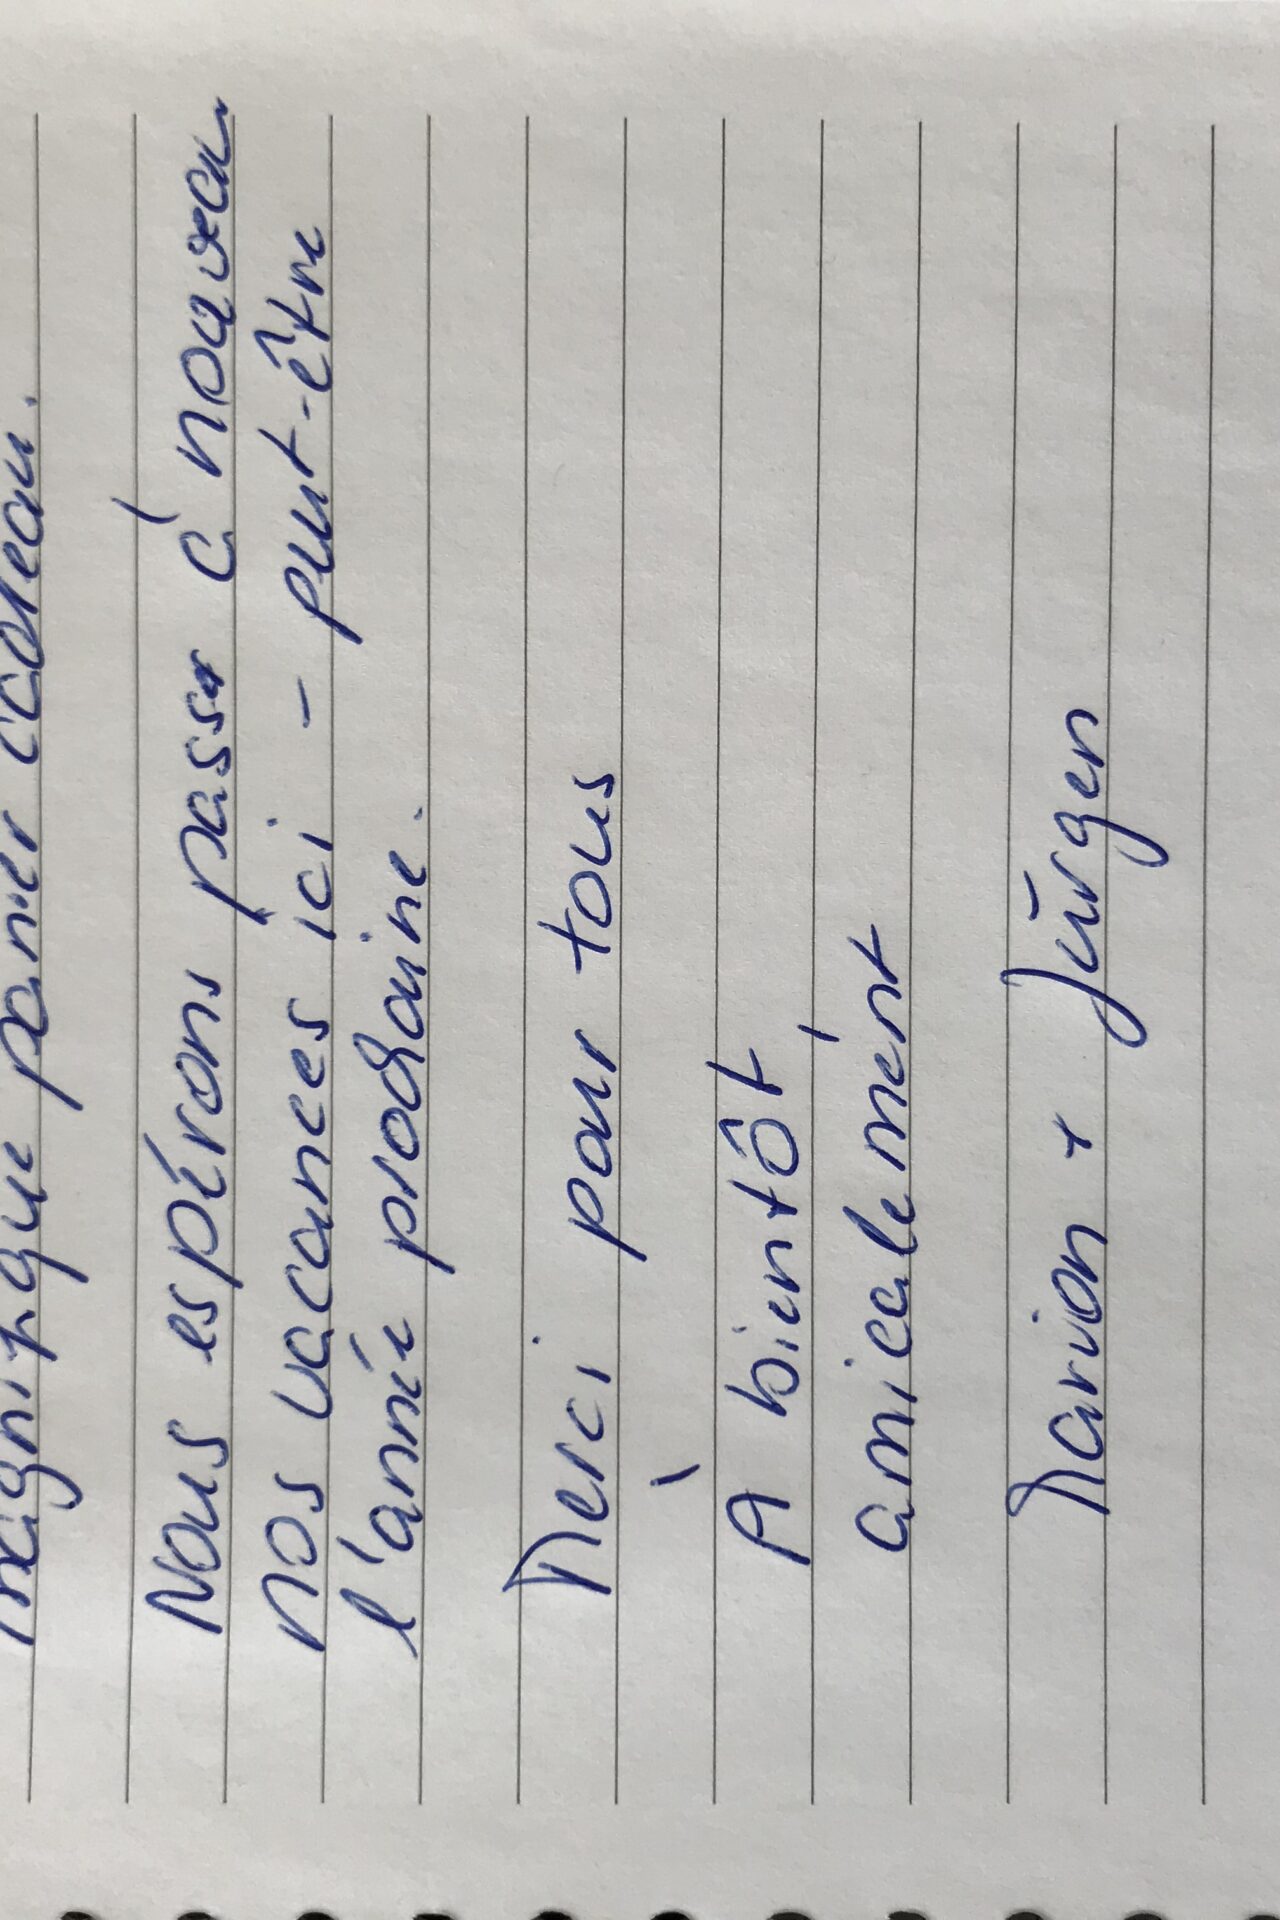 magnifique panier cadeau.
Nous espérons passer à nouveau
nos vacances ici - peut-être
l'année prochaine.
Merci pour tous
À bientôt,
amicalement
Marion + Jürgen